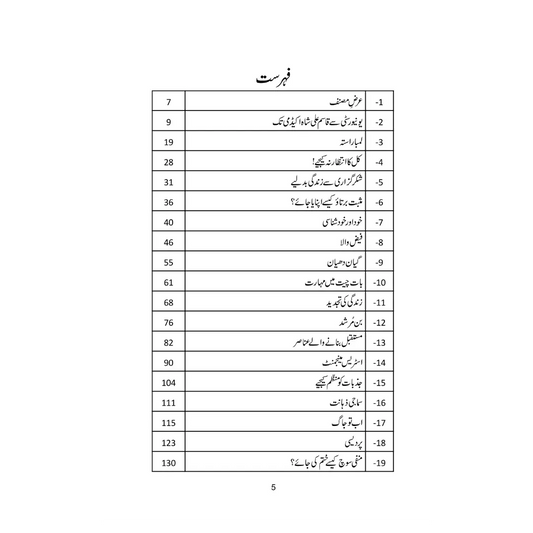 فہرست
-1 عرضِ مصنف 7
-2 یونیورسٹی سے قاسم علی شاہ اکیڈمی تک 9
-3 لمبا راستہ 19
-4 کل کا انتظار نہ کیجیے! 28
-5 شکرگزاری سے زندگی بدلیے 31
-6 مثبت برتاؤ کیسے اپنایا جائے؟ 36
-7 خود اور خود شناسی 40
-8 فیض والا 46
-9 گیان دھیان 55
-10 بات چیت میں مہارت 61
-11 زندگی کی تجدید 68
-12 بن مُرشد 76
-13 مستقبل بنانے والے عناصر 82
-14 اسٹریس مینجمنٹ 90
-15 جذبات کو منظم کیجیے 104
-16 سماجی ذہانت 111
-17 اب تو جاگ 115
-18 پردیسی 123
-19 منفی سوچ کیسے ختم کی جائے؟ 130
5